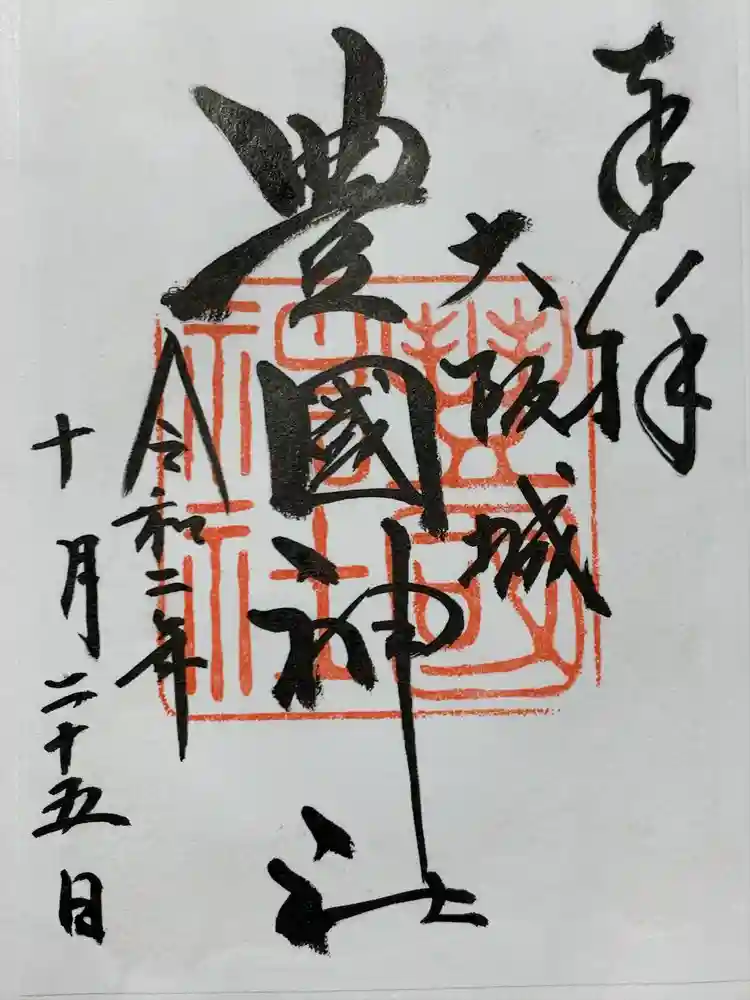 奉拝
大阪城
豊國神社
令和二年
十月二十五日
豊國神社